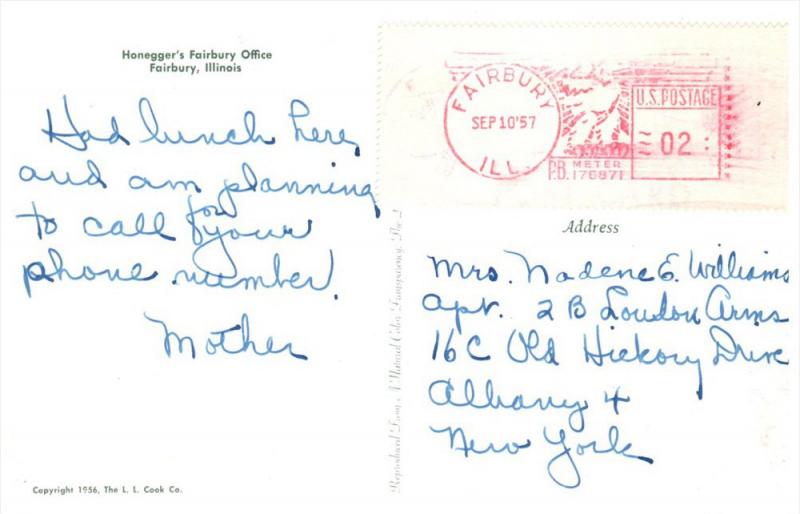 Honegger's Fairbury Office
Fairbury, Illinois
Had lunch here,
and am planning
to call for your
phone number.
Mother
Copyright 1956, The L. L. Cook Co.
Reproduced From A Natural Color Transparency. The L
FAIRBURY
SEP 10'57
ILL.
U.S. POSTAGE
02
P.B. METER
176871
Address
Mrs. Nadene E. Williams
Apt. 2 B Loudon Arms
16C Old Hickory Drive
Albany 4
New York